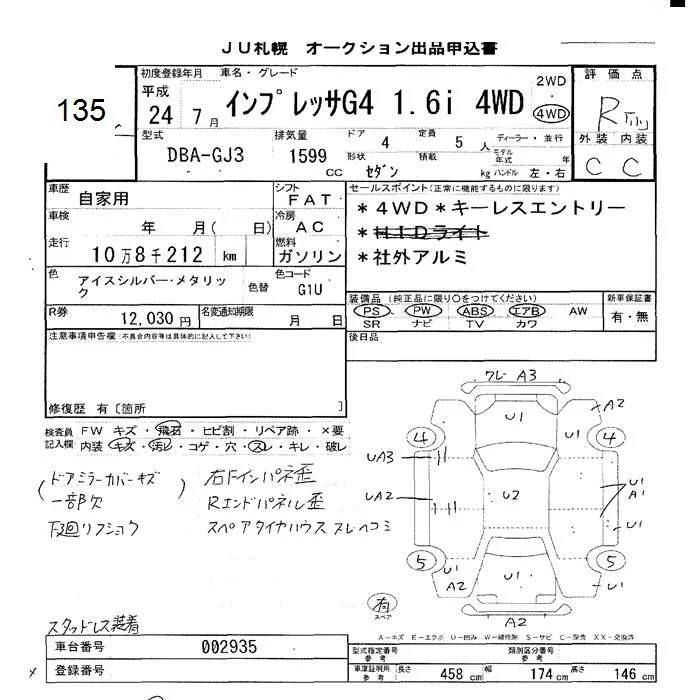 JU札幌 オークション出品申込書
135
初度登録年月 車名・グレード
平成
24 7月 インプレッサG4 1.6i 4WD
2WD
・
4WD
評価点
R
外装 内装
C C
型式 排気量 ドア 4 定員 5 人 ディーラー・並行
DBA-GJ3 1599 CC 形状 セダン 積載 kg モデル年式 年
ハンドル 左・右
車歴 自家用 シフト FAT
車検 年 月( 日) 冷房 AC
走行 10万8千212 km 燃料 ガソリン
色 アイスシルバー・メタリック 色替 色コード G1U
R券 12,030円 名変通知期限 月 日
セールスポイント(正常に機能するものに限ります)
*4WD*キーレスエントリー
*HIDライト
*社外アルミ
装備品(純正品に限り○をつけてください) 新車保証書
PS PW ABS エアB AW 有・無
SR ナビ TV カワ
後日品
注意事項申告欄(不具合内容等は具体的に記入して下さい)
修復歴 有〔箇所 〕
検査員 FW キズ・飛石・ヒビ割・リペア跡・×要
記入欄 内装 キズ・汚レ・コゲ・穴・スレ・キレ・破レ
(ドアミラーカバーキズ
一部欠)
下回リフショク
右Fインパネ歪
Rエンドパネル歪
スペアタイヤハウス スレヘコミ
ワレ A3
U1 A2
U1
4 4
UA3
UA2 U2 U1
A1
U1
5 5
U1 U1
A2 U1
有
スペア
A2
A-キズ E-エクボ U-凹み W-補修跡 S-サビ C-腐食 XX-交換済
スタッドレス装着
車台番号 002935
× 登録番号
型式指定番号 参考 類別区分番号 参考
車庫証明用 参考 長さ 458 cm 幅 174 cm 高さ 146 cm